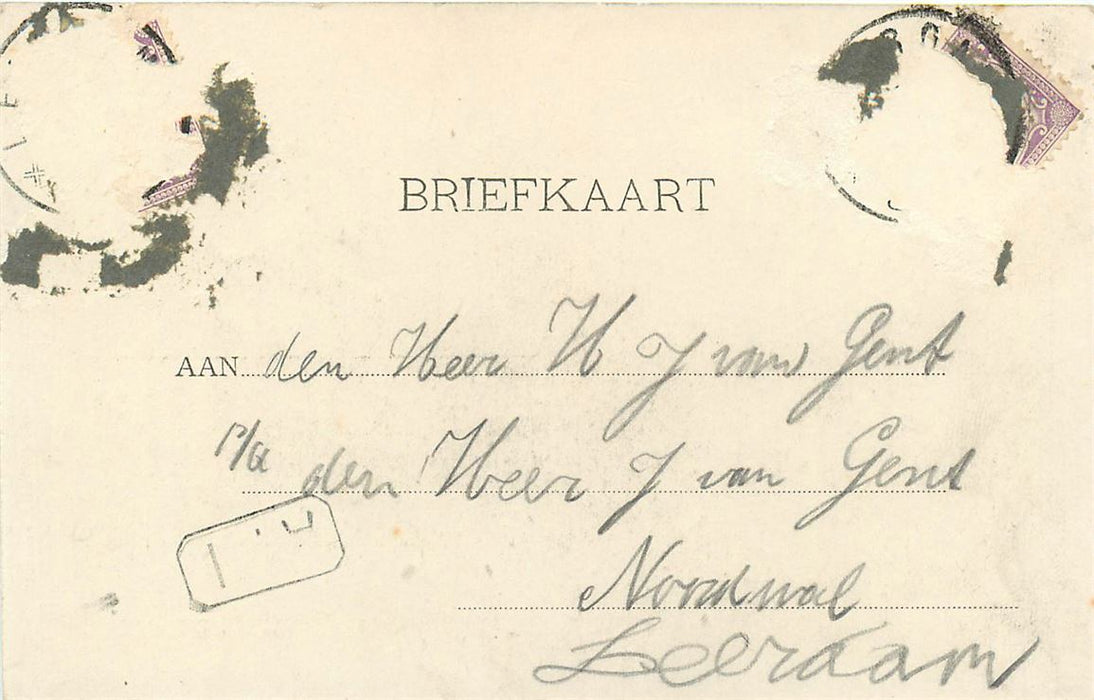 BRIEFKAART
AAN den Heer H J van Gent
p/a den Heer J van Gent
Noordwal
Leerdam